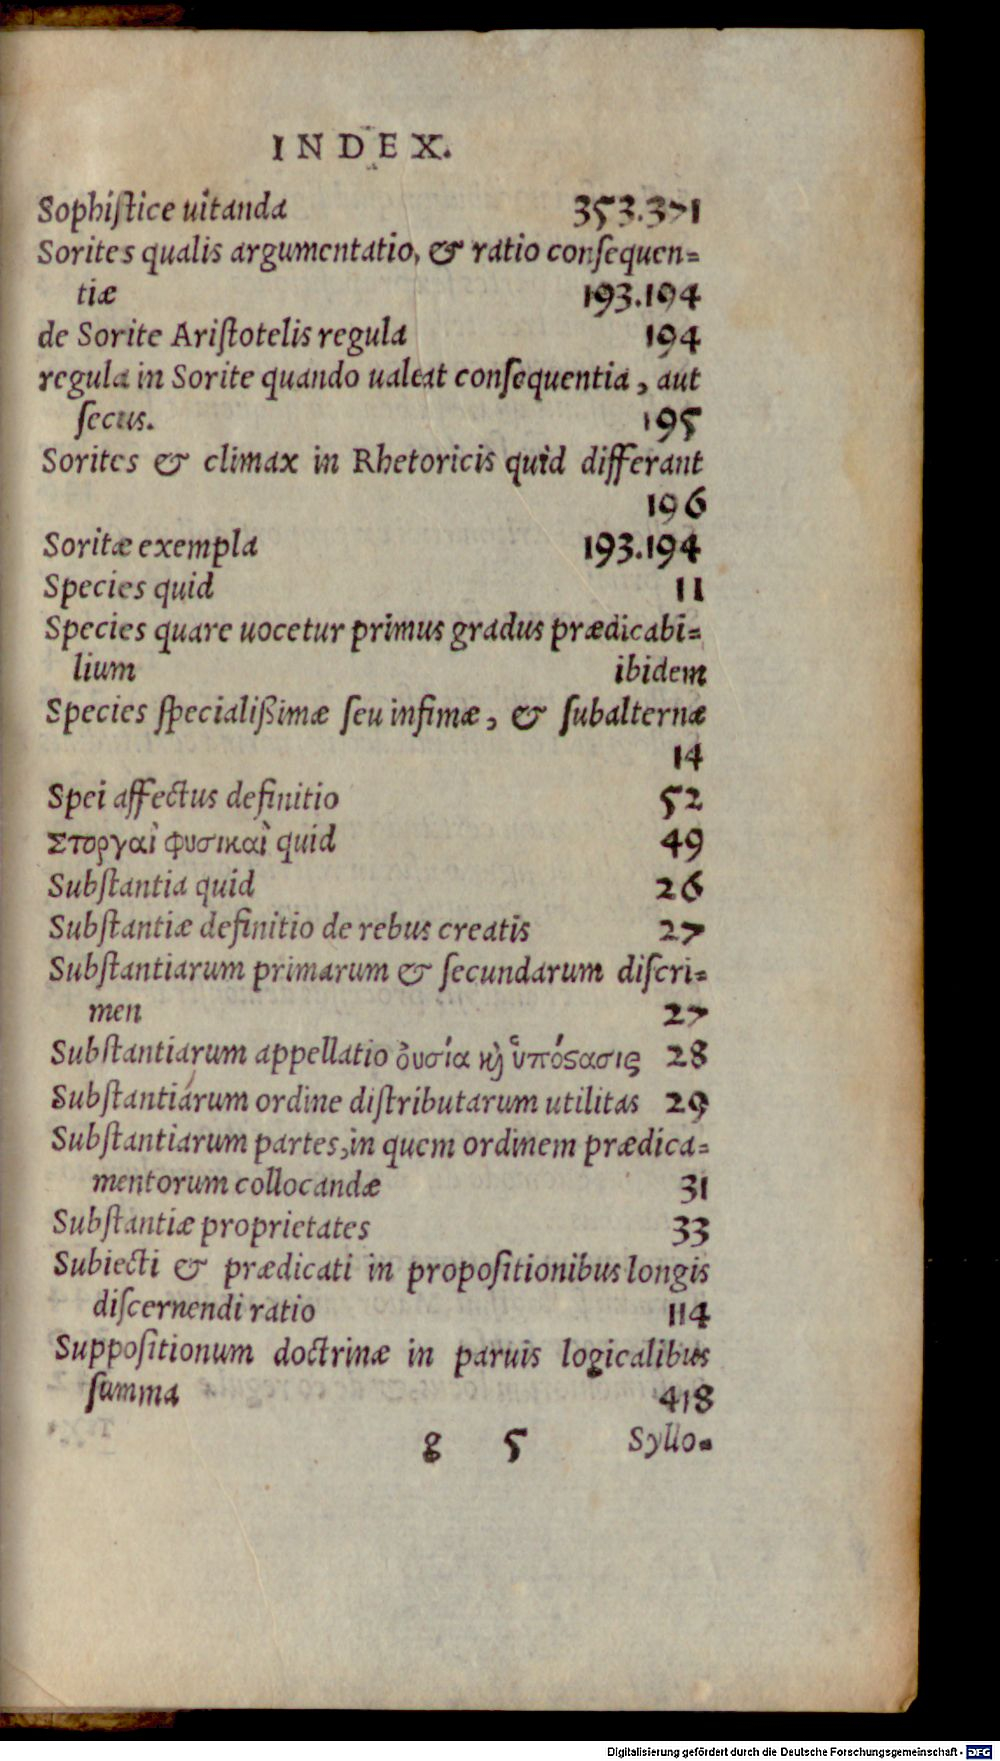 INDEX.
Sophiſtice uitanda 353.371
Sorites qualis argumentatio, & ratio conſequen=
tiæ 193.194
de Sorite Ariſtotelis regula 194
regula in Sorite quando ualeat conſequentia, aut
ſecus. 195
Sorites & climax in Rhetoricis quid differant
196
Soritæ exempla 193.194
Species quid 11
Species quare uocetur primus gradus prædicabi=
lium ibidem
Species ſpecialißimæ ſeu infimæ, & ſubalternæ
14
Spei affectus definitio 52
Στοργαὶ φυσικαὶ quid 49
Subſtantia quid 26
Subſtantiæ definitio de rebus creatis 27
Subſtantiarum primarum & ſecundarum diſcri=
men 27
Subſtantiarum appellatio ὀυσία κὶ ὑπόςασις 28
Subſtantiarum ordine diſtributarum utilitas 29
Subſtantiarum partes, in quem ordinem prædica=
mentorum collocandæ 31
Subſtantiæ proprietates 33
Subiecti & prædicati in propoſitionibus longis
diſcernendi ratio 114
Suppoſitionum doctrinæ in paruis logicalibus
ſumma 418
g 5 Syllo=
Digitalisierung gefördert durch die Deutsche Forschungsgemeinschaft - DFG